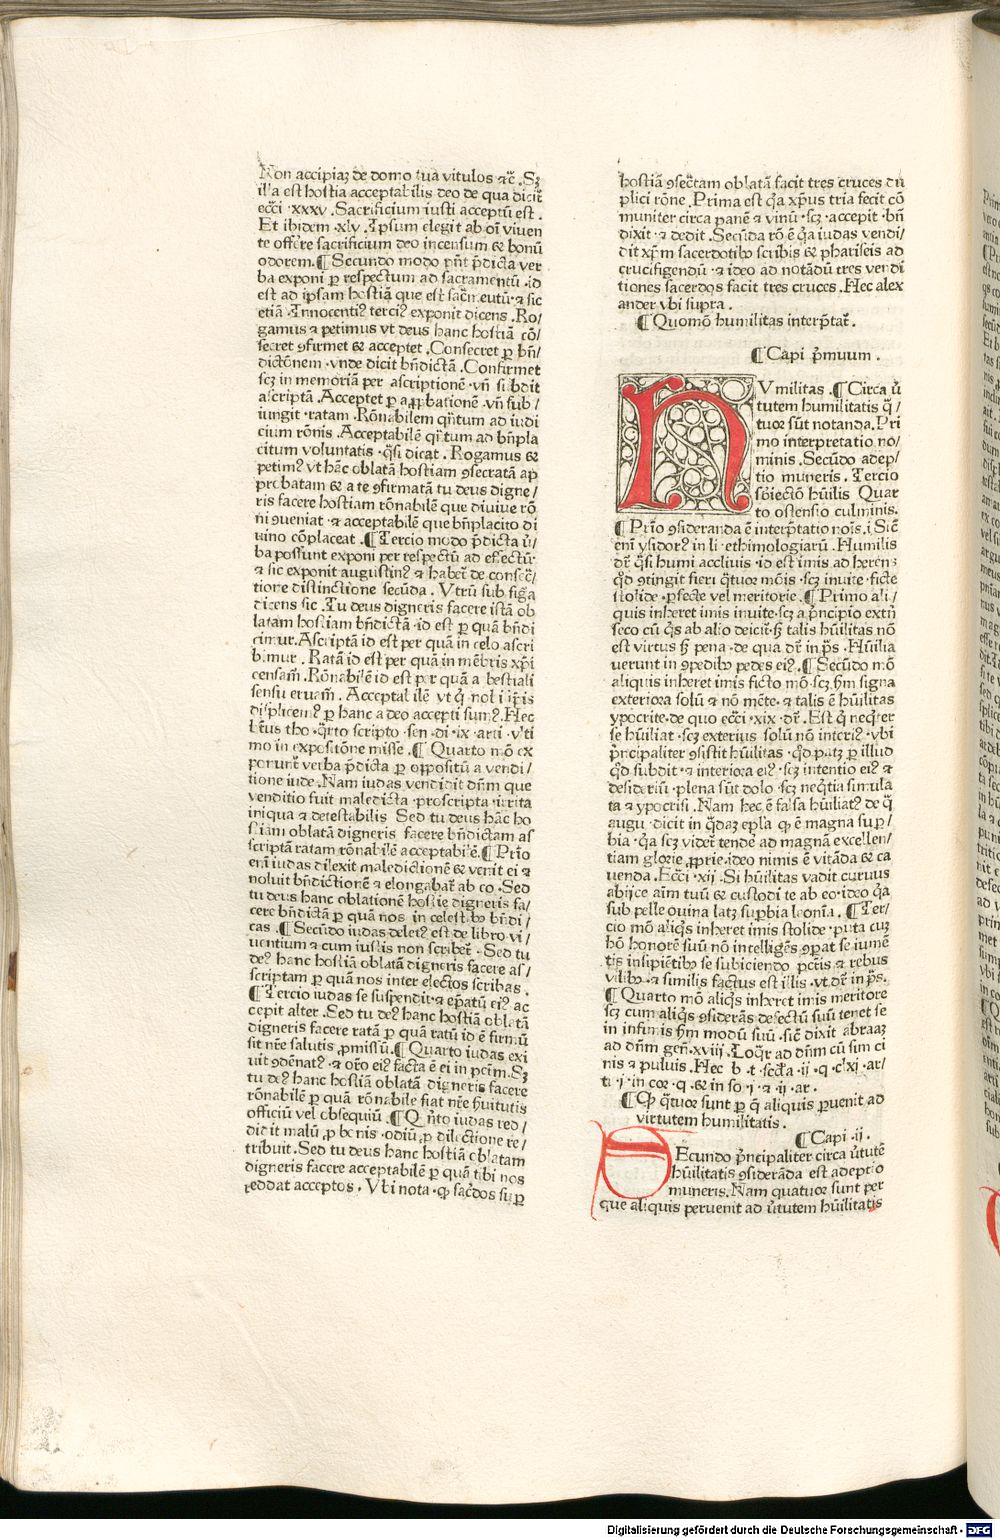 Non accipiaʒ de domo tua vitulos ⁊c̄ .Sʒ
illa est hostia acceptabilis deo de qua dicit̃
ecci ·xxxv .Sacrificium iusti acceptū est .
Et ibidem ·xlv .Ipsum elegit ab oī viuen
te offr̄e sacrificium deo incensum ⁊ bonū
odorem.¶ Secundo modo pn̄t p̄dicta ver
ba exponi ꝑ respectum ad sacramentū .id
est ad ipsam hostiā que est sacr̄m eutū·⁊ sic
etiā .Innocentiꝰ terciꝰ exponit dicens .Ro/
gamus ⁊ petimus vt deus hanc hostiā cō/
secret ꝯfirmet ⁊ acceptet .Consecret ꝑ bn̄/
dictōnem .vnde dicit bn̄dictā .Confirmet
scʒ in memoriā per ascriptionē .vn̄ subdit
ascriptā .Acceptet ꝑ aꝓbationē .vn̄ sub/
iungit .ratam .Rōnabilem qn̄tum ad iudi
cium rōnis .Acceptabilē qn̄tum ad bn̄pla
citum voluntatis .q̄si dicat .Rogamus ⁊
petimꝰ vt hāc oblatā hostiam ꝯsecratā ap
probatam ⁊ a te ꝯfirmatā tu deus digne/
ris facere hostiam rōnabilē que diuine rō
ni ꝯueniat .⁊ acceptabilē que bn̄placito di
uino cōplaceat .¶ Tercio modo p̄dicta v̄/
ba possunt exponi per respectū ad effectū·
⁊ sic exponit augustinꝰ ⁊ habet̃ de consec̄/
tione distinctione secūda .Vtrū sub figa
dicens sic .Tu deus digneris facere istā ob
latam hostiam bn̄dictā .id est ꝑ quā bn̄di
cimur.Ascriptā id est per quā in celo ascri
bimur . Ratā id est per quā in mēbris xp̄i
censam̄. Rōnabilē id est per quā a bestiali
sensu eruam̄ . Acceptabilē vt q̄ nobis ip̄is
displicemꝰ ꝑ hanc a deo accepti sumꝰ. Hec
btūs tho .q̄rto scripto .sen .di .ix .arti .vlti
mo in expositōne misse .¶ Quarto mō ex
ponunt̃ verba p̄dicta ꝑ oppositū a vendi/
tione iude .Nam iudas vendidit dn̄m que
venditio fuit maledicta .proscripta .irrita
iniqua ⁊ detestabilis Sed tu deus hāc ho
stiam oblatā digneris facere bn̄dictam as
scriptā ratam rōnabilē acceptabilē.¶ Prīo
enī iudas dilexit maledictionē ⁊ venit ei ⁊
noluit bn̄dictionē ⁊ elongabat̃ ab eo .Sed
tu deus hanc oblationē hostie digneris fa/
cere bn̄dictā ꝑ quā nos in celestibꝰ bn̄di/
cas .¶ Secūdo iudas deletꝰ est de libro vi/
uentium ⁊ cum iustis non scribet̃ .Sed tu
deꝰ hanc hostiā oblatā digneris facere as/
scriptam ꝑ quā nos inter electos scribas .
¶ Tercio iudas se suspendit ⁊ ep̄atū eiꝰ ac
cepit alter .Sed tu deꝰ hanc hostiā oblatā
digneris facere ratā ꝑ quā ratū id ē firmū
sit nr̄e salutis ꝓmissū.¶ Quarto iudas exi
uit ꝯdēnatꝰ .⁊ or̄o eiꝰ facta ē ei in pctm̄.Sʒ
tu deꝰ hanc hostiā oblatā digneris facere
rōnabilē ꝑ quā rōnabile fiat nr̄e ẜuitutis
officiū vel obsequiū .¶ Quīto iudas red/
didit malū ꝓ bonis .odiū ꝓ dilectione re/
tribuit .Sed tu deus hanc hostiā oblatam
digneris facere acceptabilē ꝑ quā tibi nos
reddat acceptos . Vbi nota .ꝙ sac̄dos suꝑ
hostiā ꝯsec̄tam oblatā facit tres cruces du
plici rōne .Prima est q̄a xp̄us tria fecit cō
muniter circa panē ⁊ vinū .scʒ .accepit .bn̄
dixit .⁊ dedit .Secūda rō ē q̄a iudas vendi/
dit xp̄m sacerdotibꝰ scribis ⁊ phariseis ad
crucifigendū .⁊ ideo ad notādū tres vendi
tiones sacerdos facit tres cruces .Hec alex
ander vbi supra .
¶ Quomō humilitas interp̄tat̃ .
¶ Capi p̄muum .
HVmilitas .¶ Circa v̄
tutem humilitatis q̄/
tuor sūt notanda.Pri
mo interpretatio no/
minis .Secūdo adep/
tio muneris .Tercio
sb̄iectō hūilis Quar
to ostensio culminis.
¶ Prīo ꝯsideranda ē interp̄tatio noīs .i Sic̄
enī ysidorꝰ in li .ethimologiarū .Humilis
dr̄ .q̄si humi accliuis .id est imis adherens
qd̄ ꝯtingit fieri q̄tuor mōis .scʒ inuite .ficte
stolide .ꝑfecte vel meritorie .¶ Primo ali/
quis inheret imis inuite .scʒ a p̄ncipio extri
seco cū q̄s ab alio deicit̃ .sʒ talis hūilitas nō
est virtus sʒ pena .de qua dr̄ in ps̄ .Hūilia
uerunt in ꝯpedibꝰ pedes eiꝰ.¶ Secūdo mō
aliquis inheret imis ficto mō .scʒ .ẜm signa
exteriora solū ⁊ nō mēte .⁊ talis ē hūilitas
ypocrite .de quo ecci .xix .dr̄ .Est q̄ neq̄ter
se hūiliat .scʒ exterius solū nō interiꝰ .vbi
p̄ncipaliter ꝯsistit hūilitas .qd̄ patʒ ꝑ illud
qd̄ subdit .⁊ interiora eiꝰ .scʒ intentio eiꝰ ⁊
desideriū .plena sūt dolo .scʒ neq̄tia simula
ta ⁊ ypocrisi .Nam hec ē falsa hūiliatꝰ de q̄
augu .dicit in q̄daʒ epl̄a ꝙ ē magna suꝑ/
bia .q̄a scʒ videt̃ tendē ad magnā excellen/
tiam glorie ꝓprie .ideo nimis ē vitāda ⁊ ca
uenda .Ecci .xij .Si hūilitas vadit curuus
abijce aīm tuū ⁊ custodi te ab eo .ideo q̄a
sub pelle ouina latʒ suꝑbia leonīa . ¶ Ter/
cio mō aliq̄s inheret imis stolide .puta cuʒ
hō honorē suū nō intelligēs ꝯꝑat se iumē
tis insipiētibꝰ se subiciendo pctīs ⁊ rebus
vilibꝰ .⁊ similis factus est illis .vt dr̄ in ps̄.
¶ Quarto mō aliq̄s inheret imis meritorie
scʒ cum aliq̄s ꝯsiderās defectū suū tenet se
in infimis ẜm modū suū .sic̄ dixit abraaʒ
ad dn̄m geñ.xviij .Loq̄r ad dn̄m cū sim ci
nis ⁊ puluis .Hec b .t .sc̄da .ij .q .clxj .ar/
ti .j .in cor .q .⁊ in so .j .⁊ .ij .ar .
¶ Ꝙ q̄tuor sunt ꝑ q̄ aliquis ꝑuenit ad
virtutem humilitatis .
¶ Capi .ij .
SEcundo p̄ncipaliter circa v̄tutē
hūilitatis ꝯsiderāda est adeptio
muneris .Nam quatuor sunt per
que aliquis peruenit ad v̄tutem hūilitatis
Digitalisierung gefördert durch die Deutsche Forschungsgemeinschaft - DFG